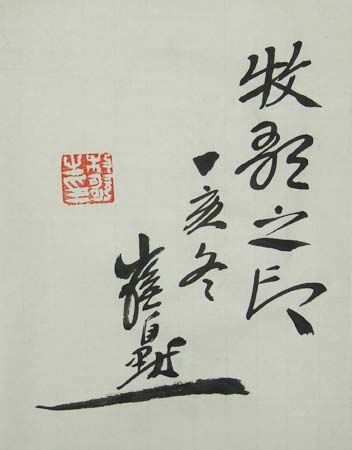 牧歌之印
丁亥冬
崔自默